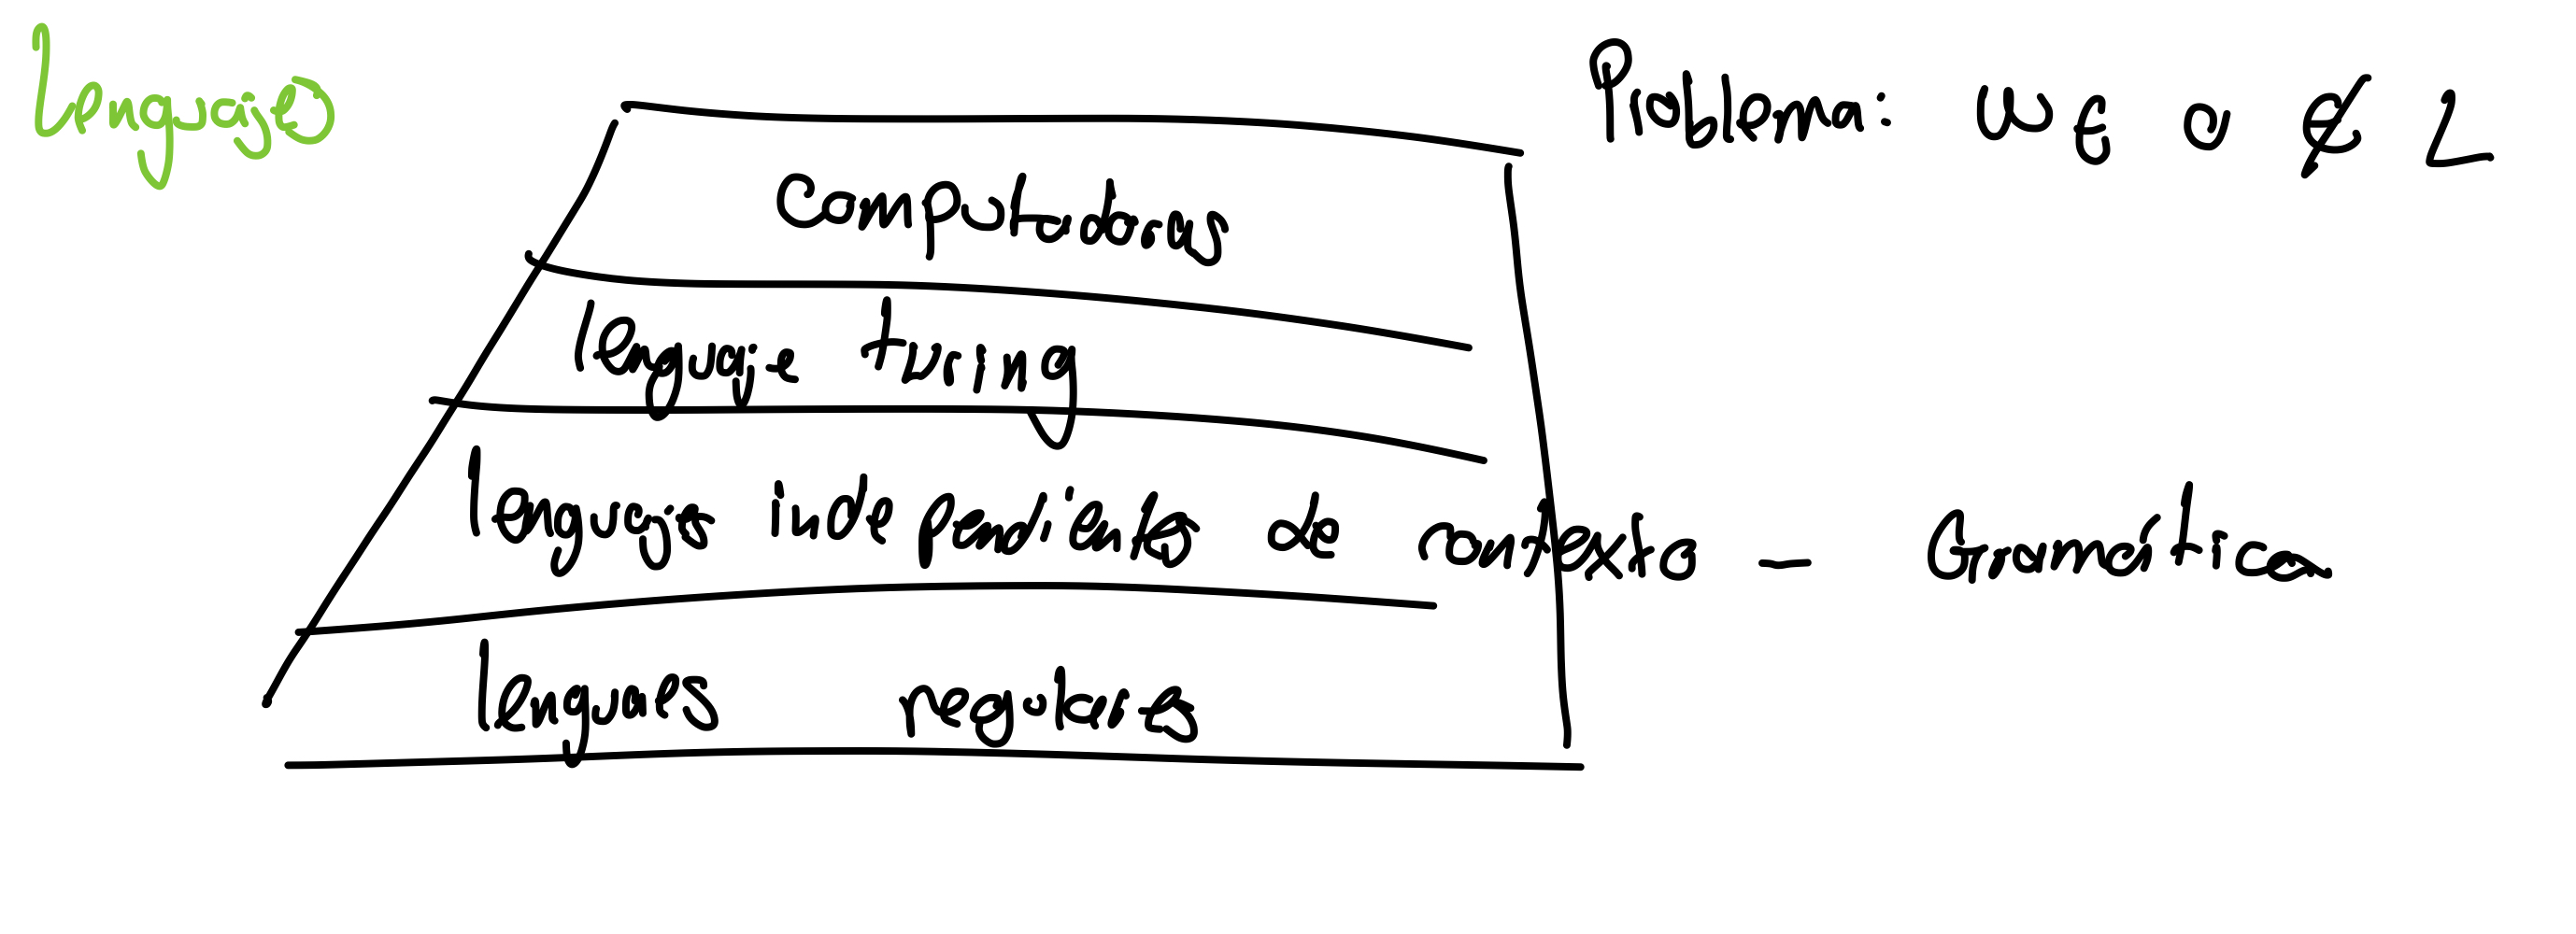 Lenguaje
Problema: w ∈ o ∉ L
Computadoras
lenguaje turing
lenguajes independientes de contexto - Gramática
lenguaes regulares